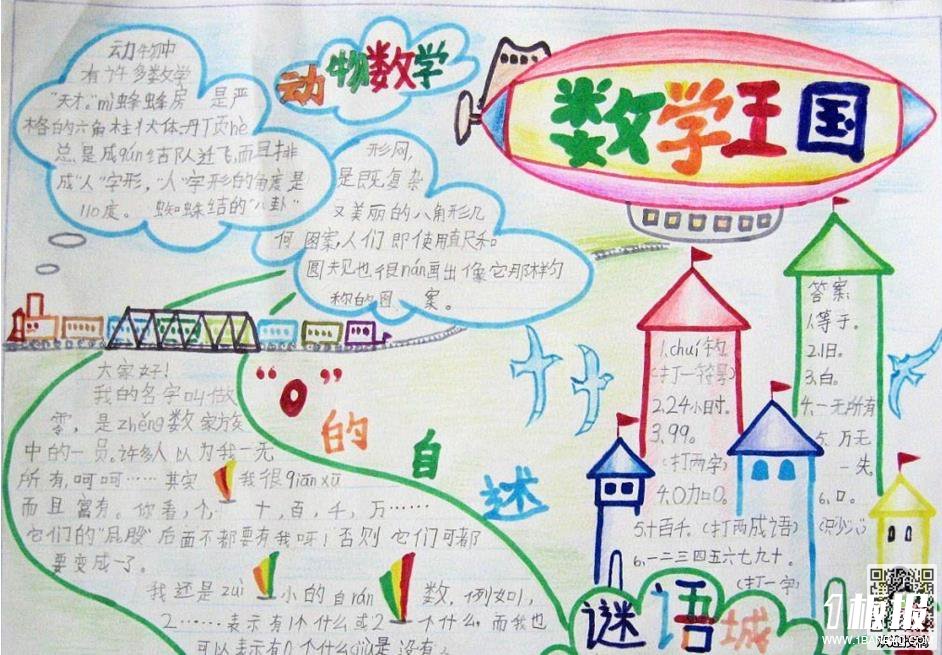 数学王国
动物数学
动物中
有许多数学
"天才。"mì蜂蜂房 是严
格的六角柱状体.丹顶hè
总是成qún结队迁飞,而且排
成"人"字形,"人"字形的角度是
110度。 蜘蛛结的"八卦"
形网,
是既复杂
又美丽的八角形几
何 图案,人们 即使用直尺和
圆规也很nán画出像它那样匀
称的图 案。
"0"的自述
大家好!
我的名字叫做
零,是zhěng数家族
中的一员.许多人以为我一无
所有,呵呵…… 其实 我很qiān xū
而且富有。你看,个 十,百,千,万……
它们的"屁股"后面不都要有我呀!否则它们可都
要变成一了。
我还是zuì 小的自rán 数.例如1,
2……表示有1个什么或2 个什么,而我也
可以表示有0个什么jiù是没有。
1.chuí钓.
(打一符号)
2.24小时.
3.99。
(打两字)
4.0加0。
5.十百千.(打两成语)
6.一二三四五六七九十.
(打一字)
答案:
1.等于。
2.旧。
3.白。
4.一无所有
5.万无
一失。
6.口。
(只少八)
谜语城
1板报
WWW.1BANBAO.COM
欢迎投稿